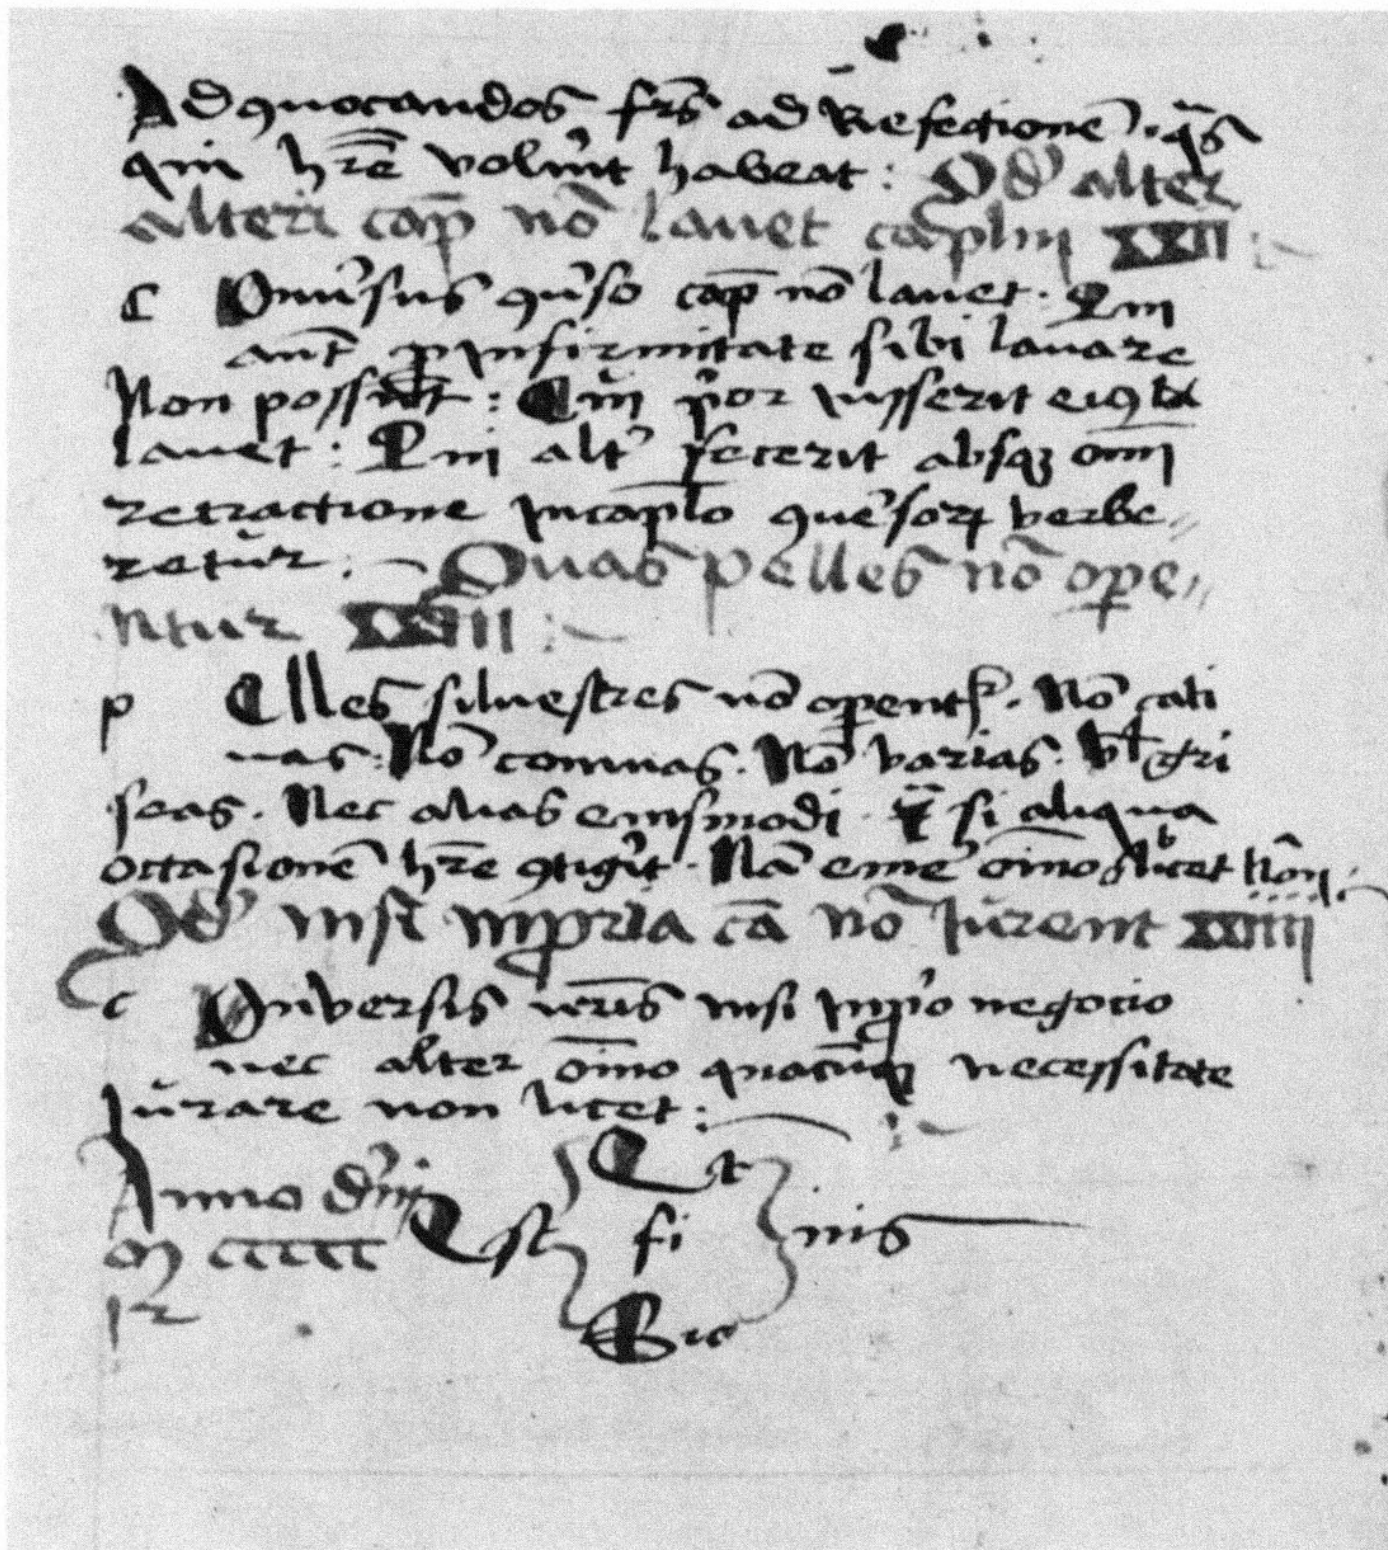 Ad ꝯuocandos fr̄s ad Refectionē . q̄s
qui hr̄e volūit habeat : Qd̓ alter
alteri cap̄ nō lauet caplm XXII
C Onu̓sus ꝯu̓so cap̄ nō lauet . Qui
aut̄ p infirmitate sibi lauare
Non possunt : Cui p̓or iusserit eiꝯ
lauet : Qui alt̓ fecerit absqꝫ om̄i
retractione in cap̄lo ꝯue̓soꝝ verbe
retur . Quas pelles nō ope
ntur XXIII
p Elles siluestres nō operent᷑ . Nō cati
nas : Nō coninas . Nō varias . vl̄ gri
seas . Nec alias eiusmodi si aliqua
occasionē hr̄e ꝯtigit̓ . Nā eme̓ om̄o licet Nōn
Qd̓ nisi inꝓria cā nō Jurent XXIIII
C Onversis nr̄is nisi inꝓp̓o negocio
nec alter om̄o quacūqꝫ necessitate
Jurare non licet :
Anno dn̓i Et
M ccccc Est fi nis
Sic